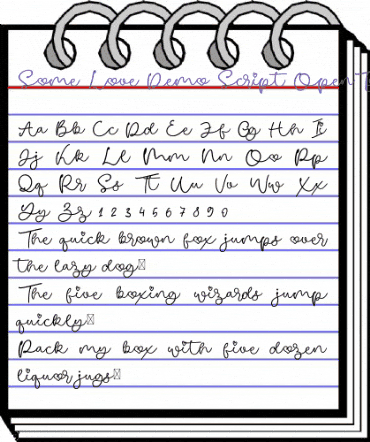 Some Love Demo Script OpenT
Aa Bb Cc Dd Ee Ff Gg Hh Ii
Jj Kk Ll Mm Nn Oo Pp
Qq Rr Ss Tt Uu Vv Ww Xx
Yy Zz 1 2 3 4 5 6 7 8 9 0
The quick brown fox jumps over
the lazy dog
The five boxing wizards jump
quickly
Pack my box with five dozen
liquor jugs